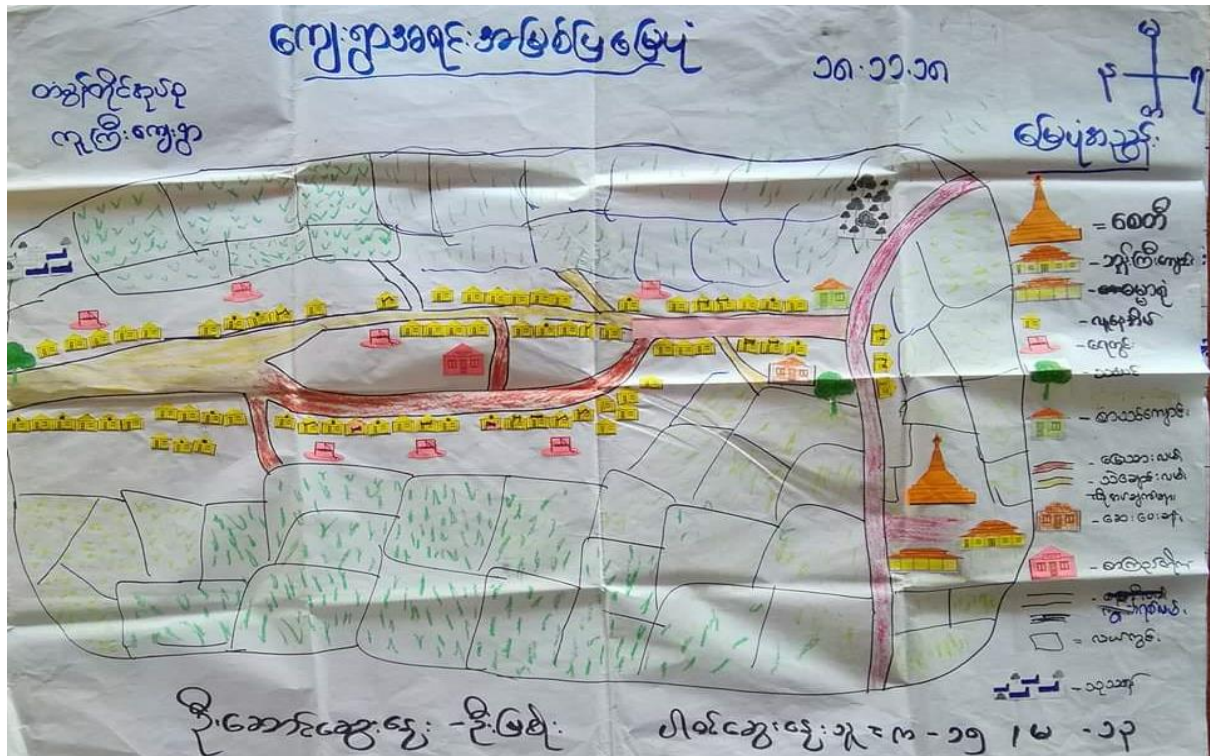 ကျေးရွာအရင်းအမြစ်ပြမြေပုံ
၁၈.၁၁.၁၈
တံခွန်တိုင်အုပ်စု
ကူကြီးကျေးရွာ
မြေပုံအညွှန်း
= စေတီ
- ဘုန်းကြီးကျောင်း
- ဓမ္မာရုံ
- လူနေအိမ်
- ရေတွင်း
- သစ်ပင်
- စာသင်ကျောင်း
- မြေသားလမ်း
- ဆေးပေးခန်း
- စာကြည့်တိုက်
= လယ်ကွင်း
- သုသာန်
ဦးဆောင်ဆွေးနွေး - ဦးမြစိုး
ပါဝင်ဆွေးနွေးသူ = က - ၁၅ / မ - ၁၃